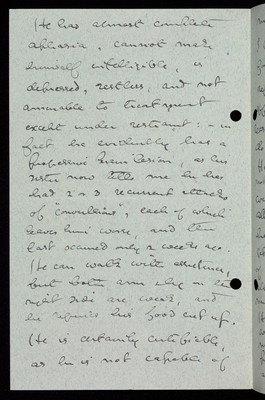 He has almost complete
aphasia, cannot make
himself intelligible, is
depressed, restless, and not
amenable to treatment
except under restraint: - in
fact he evidently has a
progressive brain lesion, as his
sister now tells me he has
had 2 or 3 recurrent attacks
of "convulsions", each of which
leaves him worse, and the
last occurred only 2 weeks ago.
He can walk with assistance,
but both arm & leg on the
right side are weak, and
he requires his food cut up.
He is certainly certifiable,
as he is not capable of